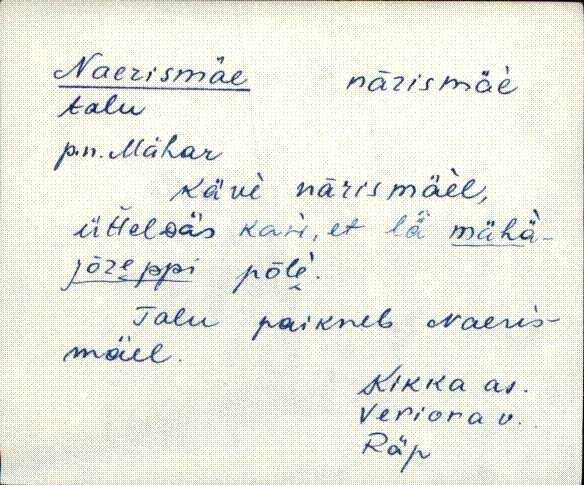 Naerismäe nārismäè
talu
p.n. Mähar
Kävè nārismäèl,
üťťeldäs kasì, et lä mähà-
jōzeppi pōlè.
Talu paikneb Naeris-
mäel.
Kikka as.
Veriora v.
Räp